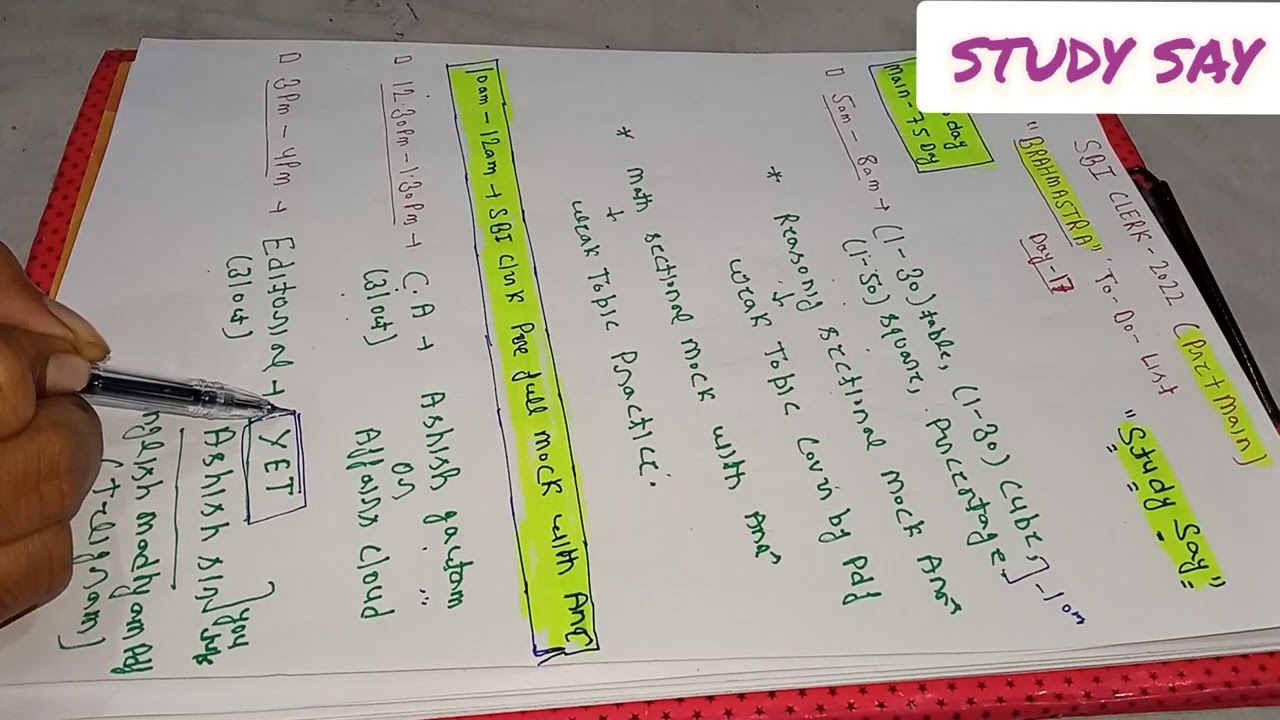 STUDY SAY
SBI CLERK - 2022 (Pre+Main)
"BRAHMASTRA" To-Do-List "Study Say"
Day-17
day
Main-75Day
5am - 8am → (1-30)table, (1-30) cube,
(1-50) square, percentage
* Reasoning sectional mock Ans
↓
weak Topic cover by pdf
* Math sectional mock with Ans
↓
weak Topic Practice.
10am-12am → SBI clerk Pre full mock with Ans
12:30Pm-1:30Pm → C.A → Ashish gautam
(3lout) or
Affairs cloud
3Pm - 4Pm → Editorial → YET
(3lout) Ashish
nglish madhyam Pdf
(Telegram)